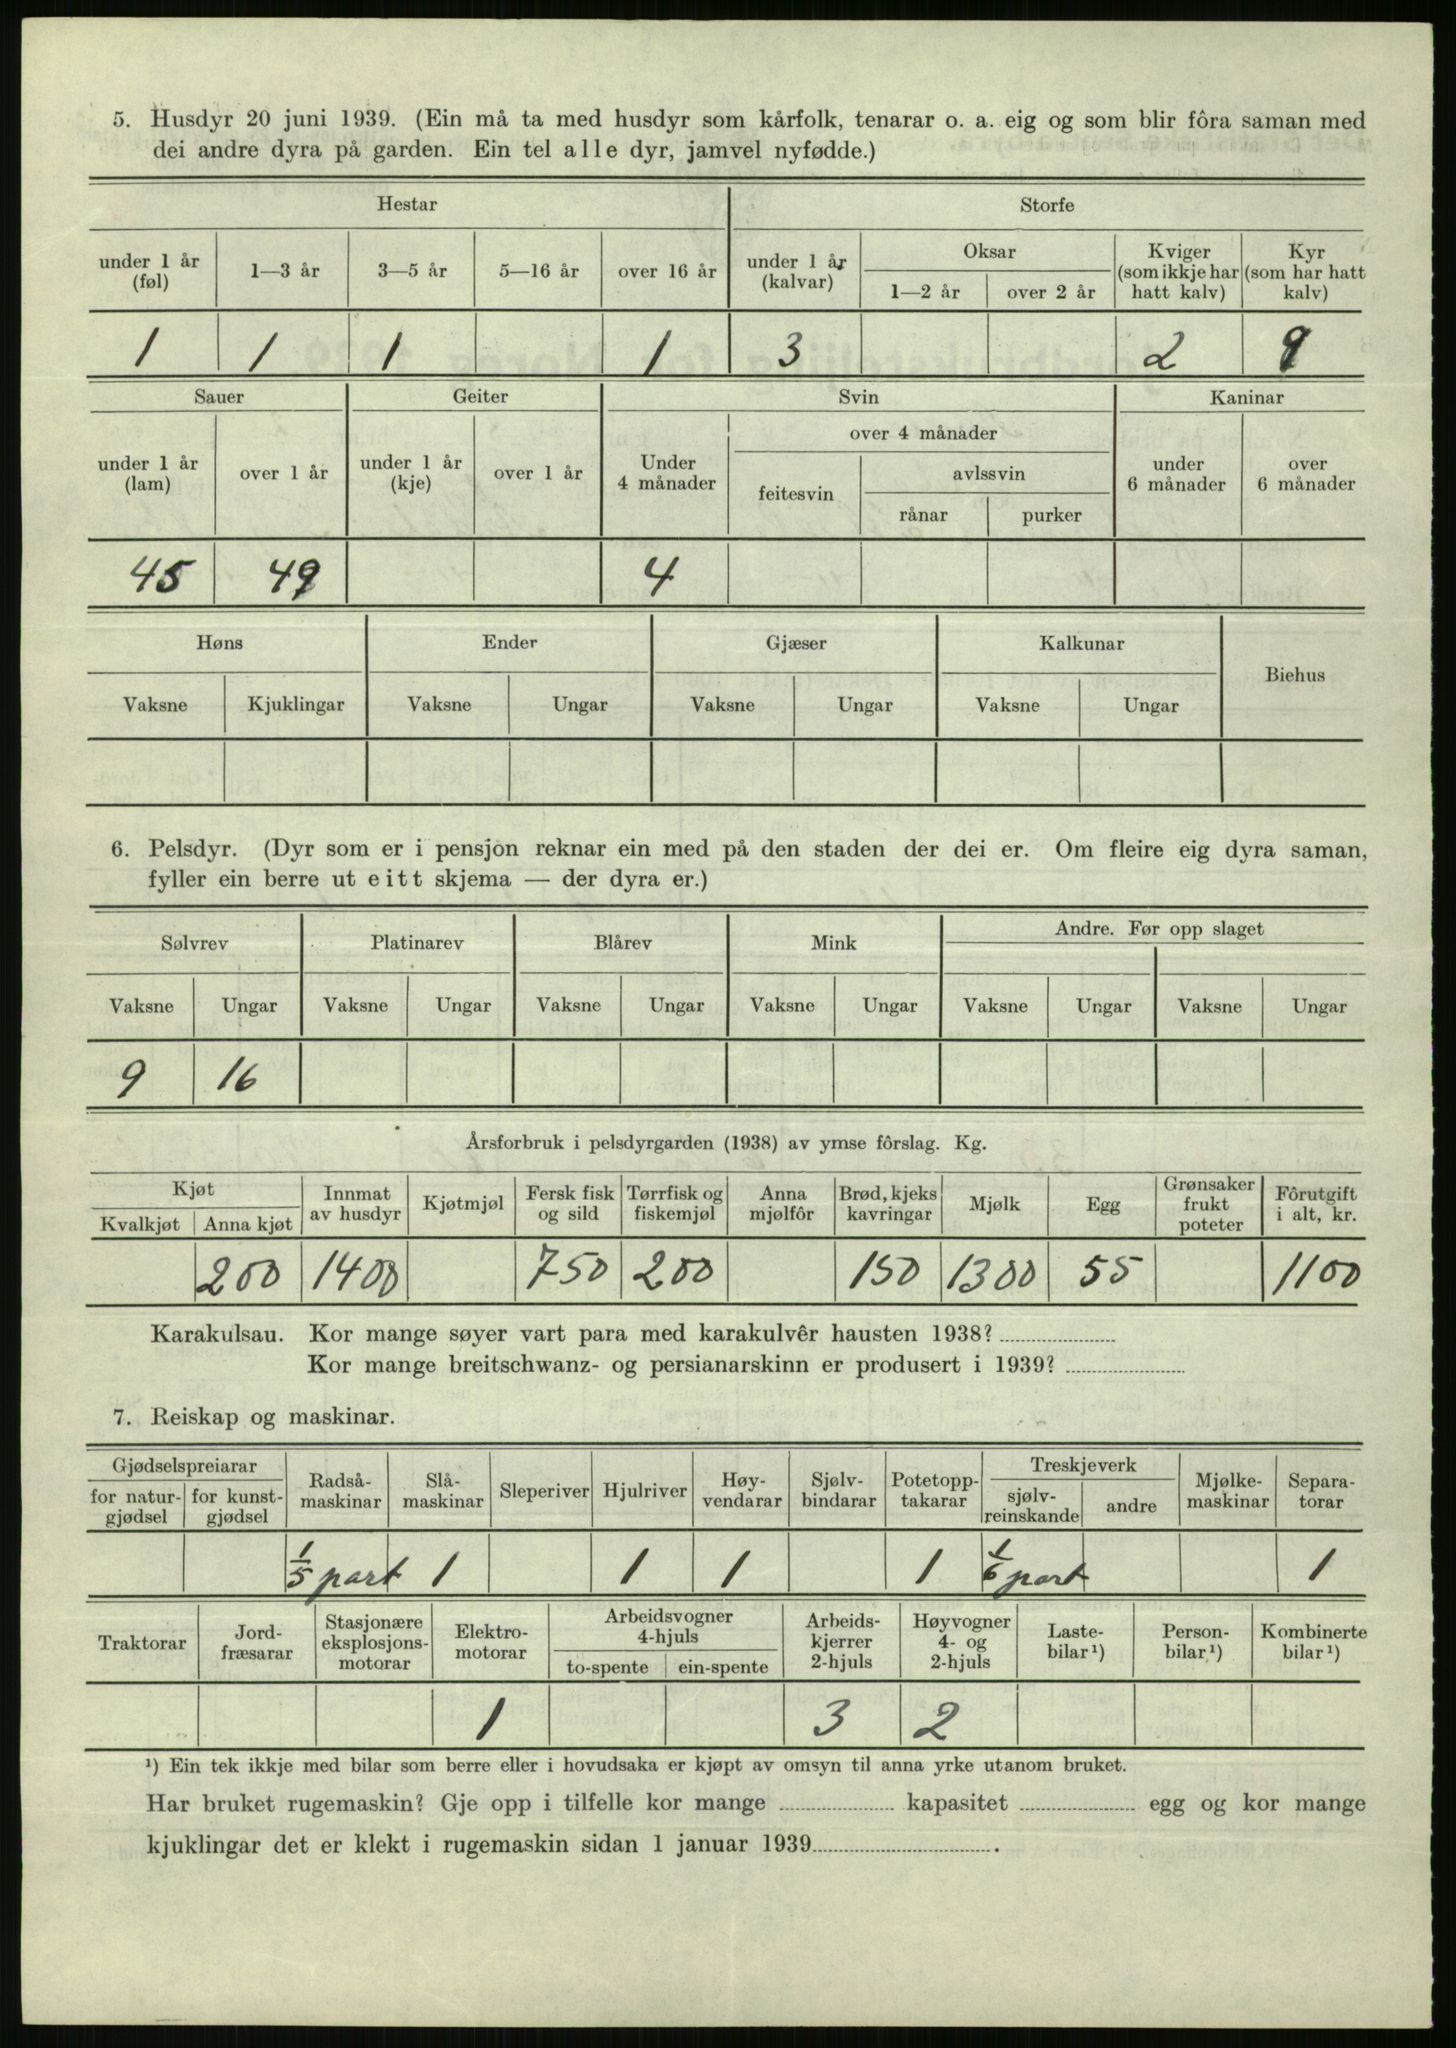 5. Husdyr 20 juni 1939. (Ein må ta med husdyr som kårfolk, tenarar o. a. eig og som blir fôra saman med
dei andre dyra på garden. Ein tel alle dyr, jamvel nyfødde.)
Hestar Storfe
under 1 år (føl) 1—3 år 3—5 år 5—16 år over 16 år under 1 år (kalvar) Oksar 1—2 år over 2 år Kviger (som ikkje har hatt kalv) Kyr (som har hatt kalv)
1 1 1 1 3 2 9
Sauer Geiter Svin Kaninar
under 1 år (lam) over 1 år under 1 år (kje) over 1 år Under 4 månader over 4 månader feitesvin avlssvin rånar purker under 6 månader over 6 månader
45 49 4
Høns Ender Gjæser Kalkunar Biehus
Vaksne Kjuklingar Vaksne Ungar Vaksne Ungar Vaksne Ungar
6. Pelsdyr. (Dyr som er i pensjon reknar ein med på den staden der dei er. Om fleire eig dyra saman,
fyller ein berre ut eitt skjema — der dyra er.)
Sølvrev Platinarev Blårev Mink Andre. Før opp slaget
Vaksne Ungar Vaksne Ungar Vaksne Ungar Vaksne Ungar Vaksne Ungar Vaksne Ungar
9 16
Årsforbruk i pelsdyrgarden (1938) av ymse fôrslag. Kg.
Kjøt Kvalkjøt Anna kjøt Innmat av husdyr Kjøtmjøl Fersk fisk og sild Tørrfisk og fiskemjøl Anna mjølfôr Brød, kjeks kavringar Mjølk Egg Grønsaker frukt poteter Fôrutgift i alt, kr.
200 1400 750 200 150 1300 55 1100
Karakulsau. Kor mange søyer vart para med karakulvêr hausten 1938?
Kor mange breitschwanz- og persianarskinn er produsert i 1939?
7. Reiskap og maskinar.
Gjødselspreiarar for natur-gjødsel for kunst-gjødsel Radså-maskinar Slå-maskinar Sleperiver Hjulriver Høy-vendarar Sjølv-bindarar Potetopp-takarar Treskjeverk sjølv-reinskande andre Mjølke-maskinar Separa-torar
1/5 part 1 1 1 1 1/6 part 1
Traktorar Jord-fræsarar Stasjonære eksplosjons-motorar Elektro-motorar Arbeidsvogner 4-hjuls to-spente ein-spente Arbeids-kjerrer 2-hjuls Høyvogner 4- og 2-hjuls Laste-bilar ¹) Person-bilar ¹) Kombinerte bilar ¹)
1 3 2
¹) Ein tek ikkje med bilar som berre eller i hovudsaka er kjøpt av omsyn til anna yrke utanom bruket.
Har bruket rugemaskin? Gje opp i tilfelle kor mange kapasitet egg og kor mange
kjuklingar det er klekt i rugemaskin sidan 1 januar 1939 .